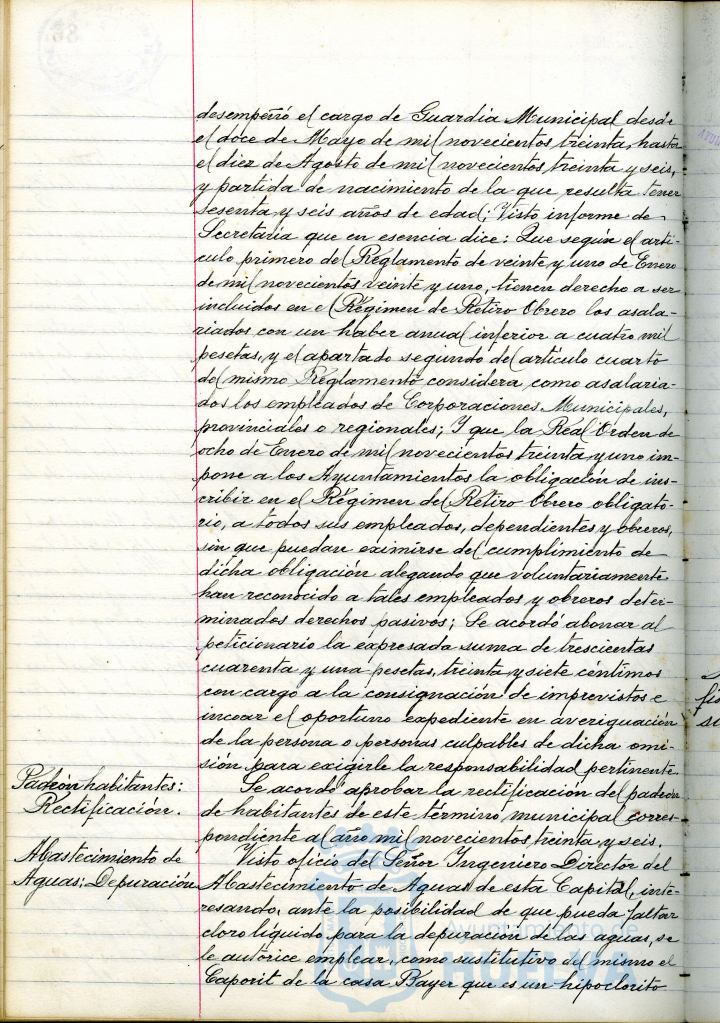 desempeñó el cargo de Guardia Municipal desde
el doce de Mayo de mil novecientos treinta, hasta
el diez de Agosto de mil novecientos treinta y seis,
y partida de nacimiento de la que resulta tener
sesenta y seis años de edad; Visto informe de
Secretaría que en esencia dice: Que según el artí-
culo primero del Reglamento de veinte y uno de Enero
de mil novecientos veinte y uno, tienen derecho a ser
incluidos en el Régimen de Retiro Obrero los asala-
riados con un haber anual inferior a cuatro mil
pesetas, y el apartado segundo del artículo cuarto
del mismo Reglamento considera como asalaria-
dos los empleados de Corporaciones Municipales,
provinciales o regionales; Y que la Real Orden de
ocho de Enero de mil novecientos treinta y uno im-
pone a los Ayuntamientos la obligación de ins-
cribir en el Régimen del Retiro Obrero obligato-
rio, a todos sus empleados, dependientes y obreros,
sin que puedan eximirse del cumplimiento de
dicha obligación alegando que voluntariamente
han reconocido a tales empleados y obreros deter-
minados derechos pasivos; Se acordó abonar al
peticionario la expresada suma de trescientas
cuarenta y una pesetas, treinta y siete céntimos
con cargo a la consignación de imprevistos e
incoar el oportuno expediente en averiguación
de la persona o personas culpables de dicha omi-
sión para exigirle la responsabilidad pertinente.
Padrón habitantes:
Rectificación.
Se acordó aprobar la rectificación del padrón
de habitantes de este término municipal corres-
pondiente al año mil novecientos treinta y seis.
Abastecimiento de
Aguas: Depuración
Visto oficio del Señor Ingeniero Director del
Abastecimiento de Aguas de esta Capital, inte-
resando, ante la posibilidad de que pueda faltar
cloro líquido para la depuración de las aguas, se
le autorice emplear, como sustitutivo del mismo el
Caporit de la casa Bayer que es un hipoclorito
Ayuntamiento de
HUELVA